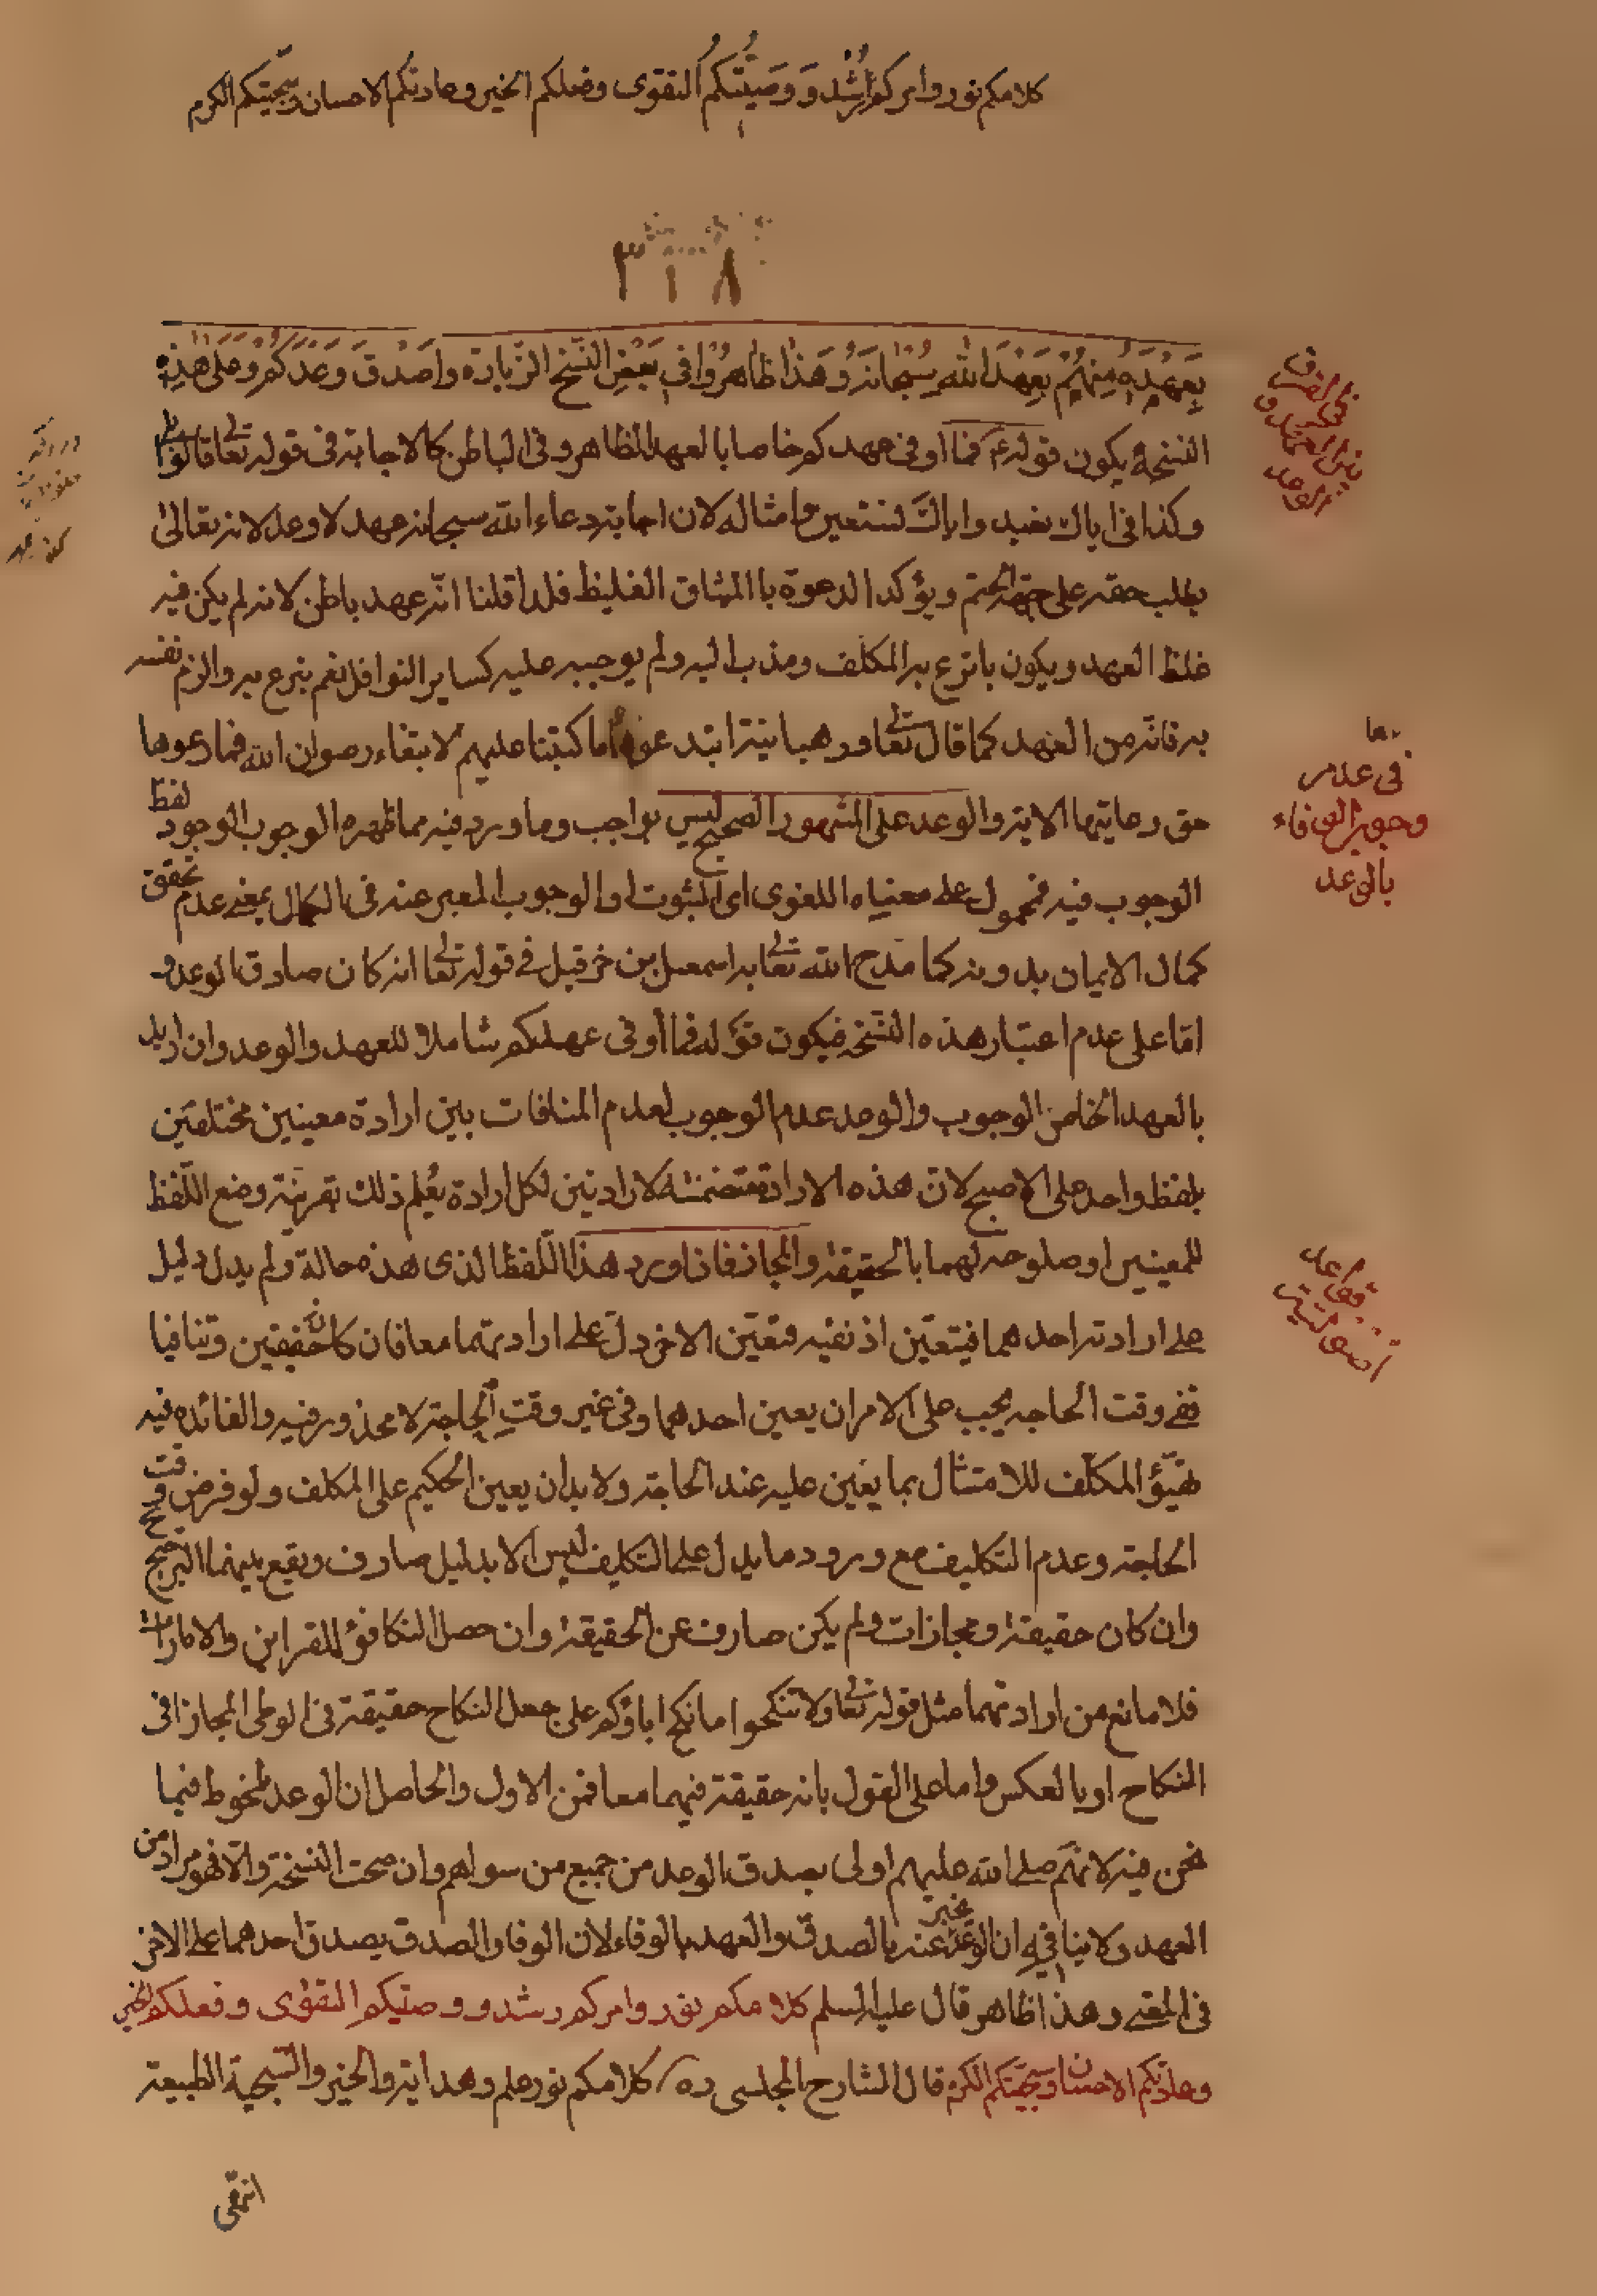 كلامكم نور وامركم رشد ووصيتكم التقوى وفعلكم الخير وعادتكم الاحسان وسجيتكم الكرم
٣١٨
بعهده منهم بعهد الله سبحانه وهذا ظاهر وفي بعض النسخ الزيادة واصدق وعدكم وعلى هذه
النسخة يكون قوله ع فما اوفى عهدكم خاصا بالعهد الظاهر وفى الباطن كالاجابة فى قوله تعالى قالوا بلى
وكذا فى اياك نعبد واياك نستعين وامثاله لان اجابته دعاء الله سبحانه عهد لا وعد لانه تعالى
يطلب حقه على جهة الحتم ويؤكد الدعوة باالميثاق الغليظ فلذا قلنا انه عهد باطن لانه لم يكن فيه
غلظ العهد ويكون باتبرع به المكلف ومندب اليه ولم يوجبه عليه كساير النوافل نعم تبرع به والزم نفسه
به فانه من العهد كما قال تعالى ورهبانية ابتدعوها ما كتبنا عليهم الا ابتغاء رضوان الله فما رعوها
حق رعايتها الاية والوعد على المشهور الصحيح ليس بواجب وما ورد فيه مما ظهره الوجوب لوجود لفظ
الوجوب فيه فمحمول على معنياه اللغوى اى الثبوت او الوجوب المعبر عنه فى الكمال بمعنى عدم تحقق
كمال الايمان بدونه كما مدح الله تعالى به اسمعيل بن حزقيل فى قوله تعالى انه كان صادق الوعد و
امّا على عدم اعتبار هذه النسخة فيكون قوله فما أوفى عهدكم شاملا للعهد والوعد وان اريد
بالعهد الخاص الوجوب والوعد عدم الوجوب لعدم المنافات بين ارادة معنيين مختلفين
بلفظ واحد على الاصح لان هذه الارادة متضمنة لارادتين لكل ارادة يُعلم ذلك بقرينة وضع اللّفظ
للمعنيين او صلوحه لهما بالحقيقة والمجاز فاذا ورد هذا اللّفظ الذى هذه حالة ولم يدل دليل
على ارادته احدهما فيتعيّن اذ نفيه فتعيّن الاخر دلّ على ارادتهما معا فان كانا حقيقتين وتنافيا
ففى وقت الحاجه يجب على الامر ان يعين احدهما وفى غير وقت الحاجة لا محذور فيه والفائده فيه
تهيّؤ المكلّف للامتثال بما يعين عليه عند الحاجة ولا بد ان يعين الحكيم على المكلف ولو فرض وقت
الحاجة وعدم التكليف مع ورود ما يدل على التكليف ليس الا بدليل صارف ويقع بينهما الترجيح
وان كان حقيقة ومجازات ولم يكن صارف عن الحقيقة وان حصل التكافؤ للقراين والامارات
فلا مانع من ارادتهما مثل قوله تعالى ولا تنكحوا ما نكح اباؤكم على جعل النكاح حقيقة فى الوطى المجاز فى
النكاح او بالعكس واما على القول بانه حقيقة فيهما معا فمن الاول والحاصل ان الوعد ملحوظ فيما
نحن فيه لانهم صلى الله عليهم اولى بصدق الوعد من جميع من سواهم وان صحت النسخة والّا فهو مراد من
العهد ولا ينافيه ان الوعد يخبر عنه بالصدق والعهد بالوفاء لان الوفا والصدق يصدق احدهما على الاخر
فى المعنى وهذا ظاهر قال عليه السلم كلامكم نور وامركم رشد ووصيتكم التقوى وفعلكم الخير
وعادتكم الاحسان وسجيتكم الكرم قال الشارح المجلسى ره كلامكم نور علم وهداية والخير والسّجية الطبيعة
انتهى
فى الفرق
بين العهد و
الوعد
فى عدم
وجوب الوفاء
بالوعد
قواعد